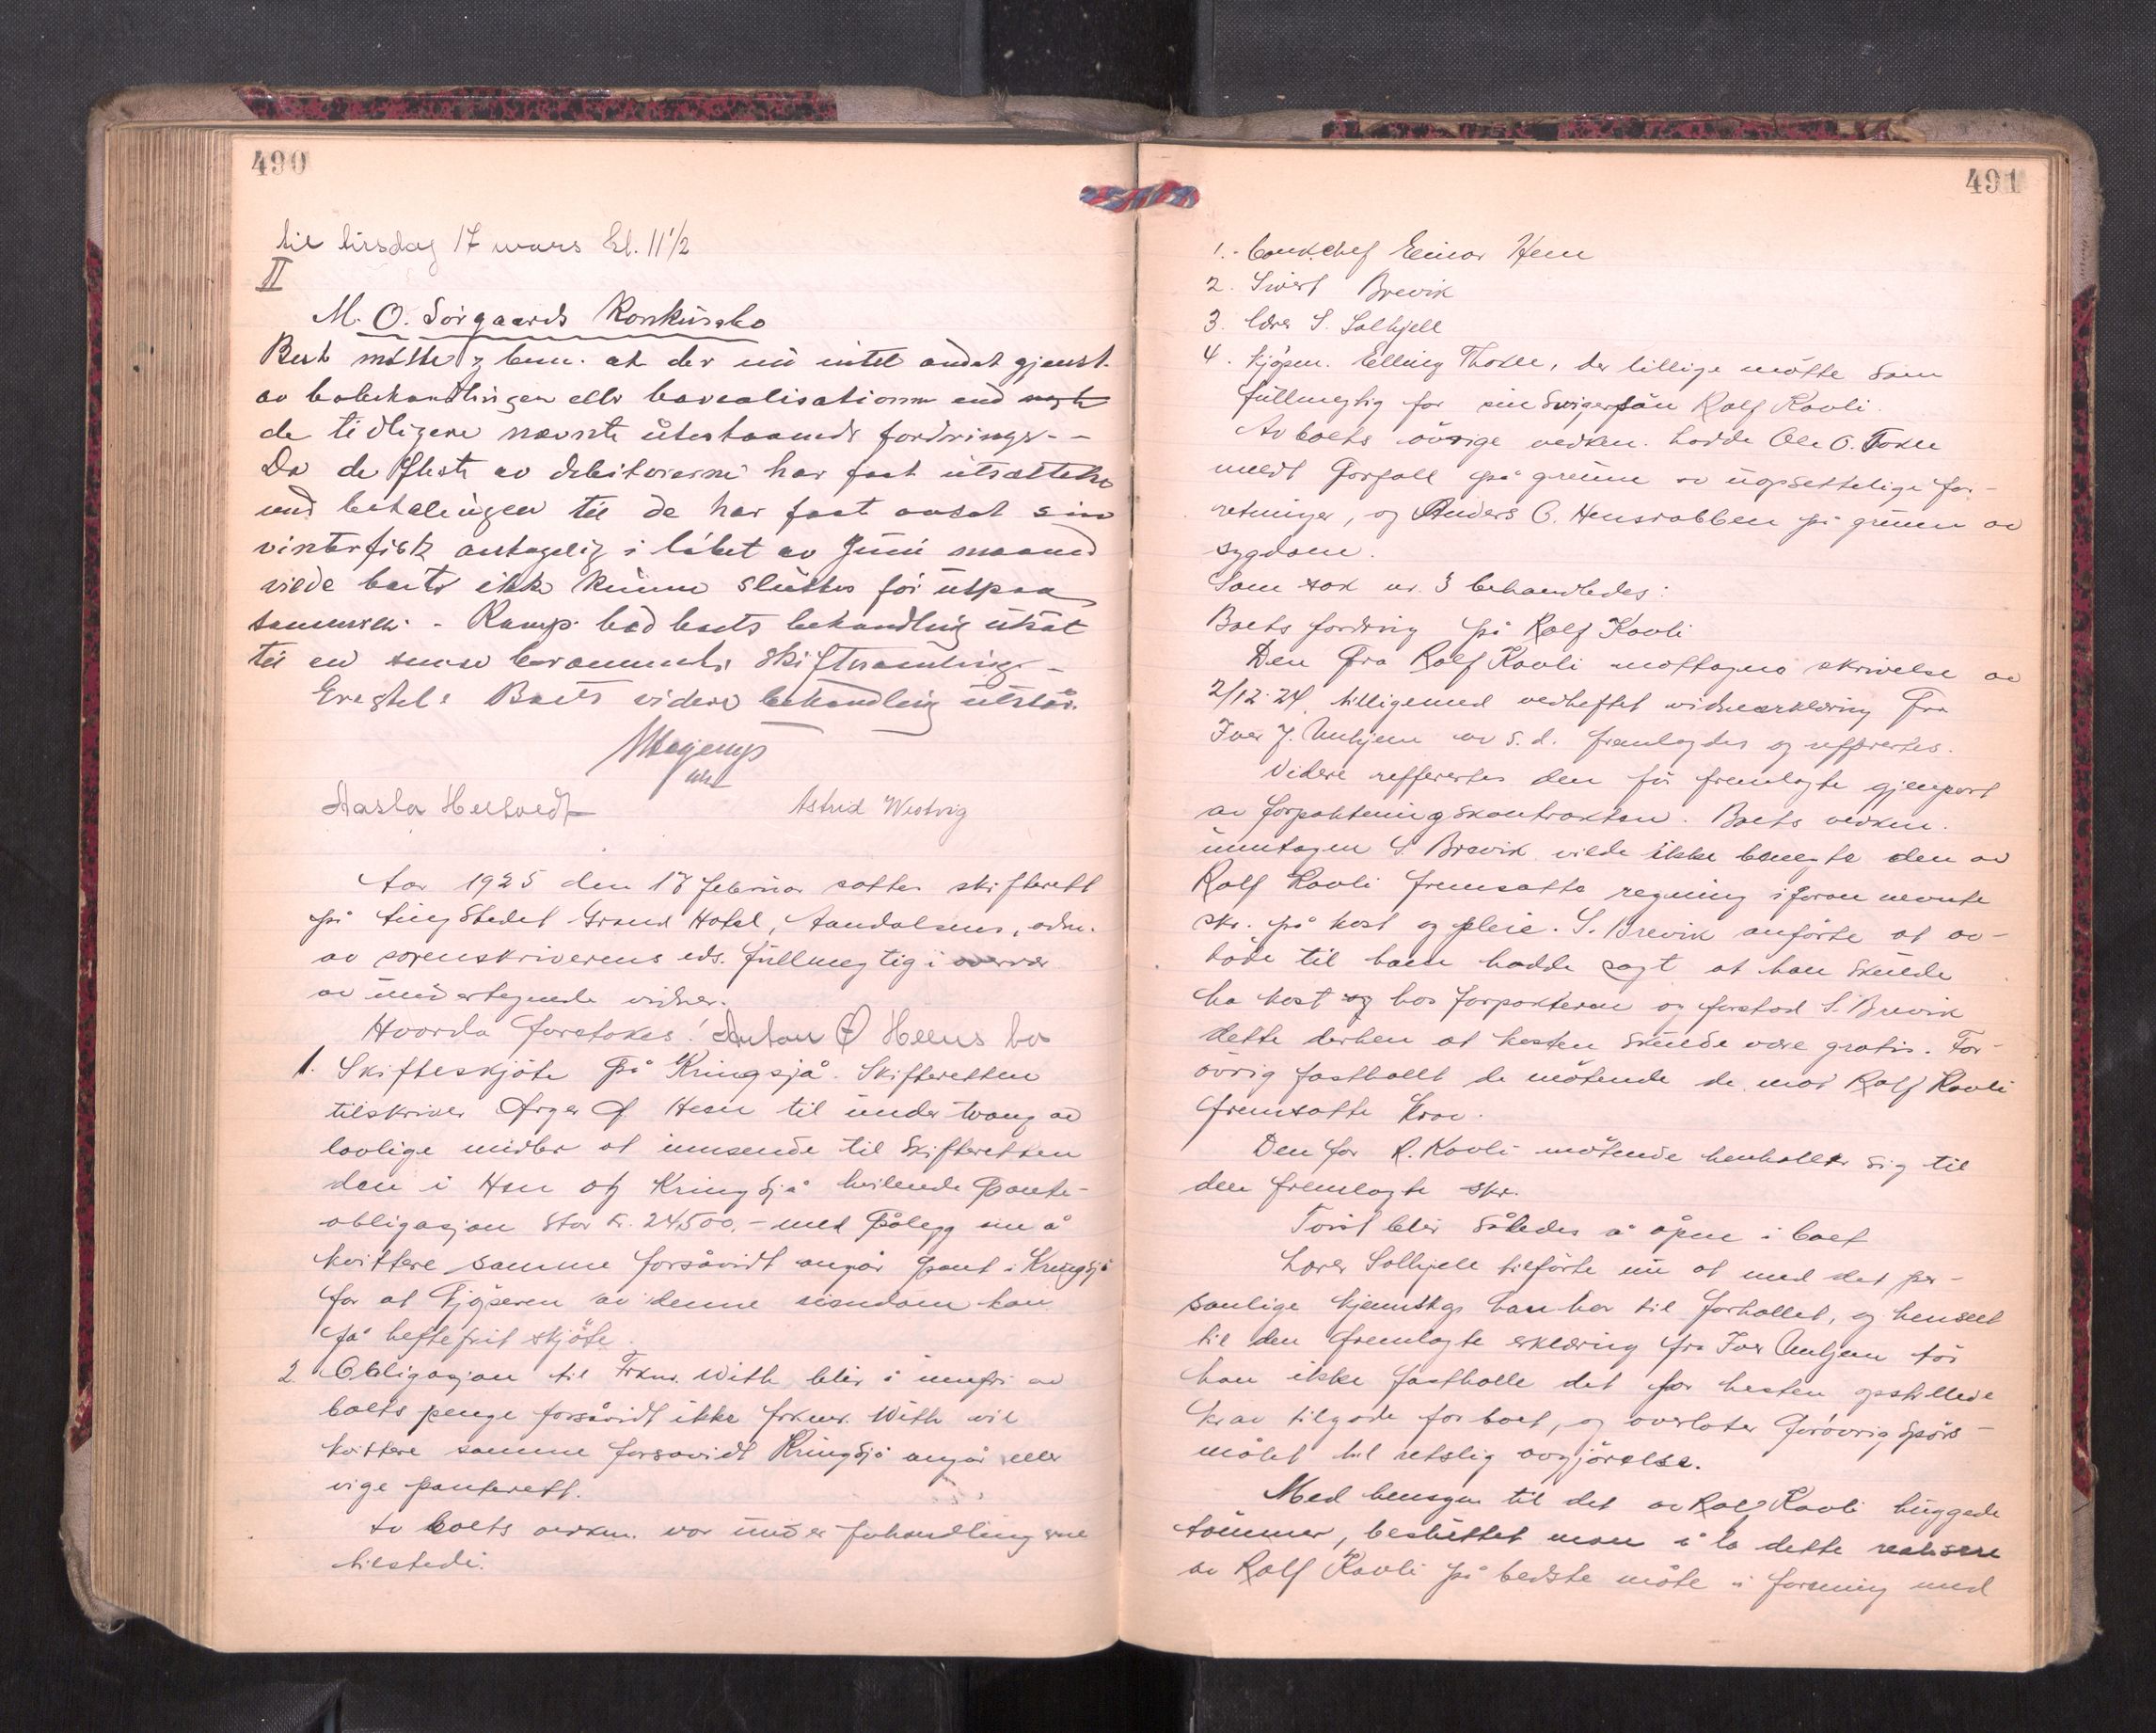 490
til tirsdag 17 mars kl. 11 1/2
II
M. O. Sörgaards Konkursbo
Best. mötte og bem. at der nu intet andet gjenst.
av bobehandlingen eller borealisationen end
de tidligere nævnte utestaaende fordringer. -
Da de fleste av debitorerne har faat utsættelse
med betalingen til de har faat avsat sin
vinterfisk antagelig i löbet av Juni maaned
vilde boet ikke kunne sluttes för utpaa
sommeren. - Kemp. bad boets behandling utsat
til en senere berammende skiftesamling. -
Eragtet: Boets videre behandling utstår.
Aasta Heltvedt Astrid Westvig
Aar 1925 den 18 februar sattes skifterett
på tingstedet Grand Hotel, Aandalsnes, adm.
av sorenskriverens eds. fullmegtig i overvær
av undertegnede vidner.
Hvorda foretokes: Anton O Heens bo
1. Skifteskjöte på Kringsjå. Skifteretten
tilskriver Arger O. Heen til under tvang av
lovlige midler at innsende til Skifteretten
den i Hen og Kringsjå heilende pante-
obligasjon stor kr. 24,500.- med pålegg om å
kvittere samme forsåvidt angår pant i Kringsjå
for at kjöperen av denne eiendom kan
få heftefrit skjöte.
2 Obligasjon til Frkn. With blir å innfri av
boets penge forsåvidt ikke frkn. With vil
kvittere samme forsavidt Kringsjå angår eller
vige panterett.
Av boets vedkm. var under forhandlingerne
tilstede:
491
1. - banкchef Einar Hem
2. Sivert Brevik
3. lærer S. Solhjell
4. kjöpm. Elling Thokle, der tillige mötte som
fullmegtig for sin svigersön Rolf Kavli.
Av boets övrige vedkm. hadde Ole O. Tokle
meldt forfall på grunn av uopsettelige for-
retninger, og Anders O. Hensrabben på grunn av
sygdom.
Som sak nr. 3 behandledes:
Boets fordring på Rolf Kavli
Den fra Rolf Kavli mottagne skrivelse av
2/12 24. tilligemed vedheftet vidneerklæring fra
Iver J. Unhjem av s.d. fremlagdes og reffertes.
Videre reffertes den för fremlagte gjenpart
av forpaktningskontrakten. Boets vedkm.
unntagen S. Brevik vilde ikke benegte den av
Rolf Kavli fremsatte regning i foran nevnte
skr. på kost og pleie. S. Brevik anförte at av-
döde til ham hadde sagt at han skulde
ha kost hos forpakteren og forstod S. Brevik
dette derhen at kosten skulde være gratis. For-
övrig fastholdt de mötende de mod Rolf Kavli
fremsatte krav.
Den for R. Kavli mötende henholder sig til
den fremlagte skr.
Tvist blir således å åpne i boet
Lærer Solhjell tilförte nu at med det per-
sonlige kjennskap han har til forholdet, og henseet
til den fremlagte erklæring fra Iver Unhjem tör
han ikke fastholde det for hesten opstillede
krav tilgode for boet, og overlater forövrig spörs-
målet til retslig avgjörelse.
Med hensyn til det av Rolf Kavli huggede
tömmer, besluttet man å la dette realisere
av Rolf Kavli på bedste måte i forening med